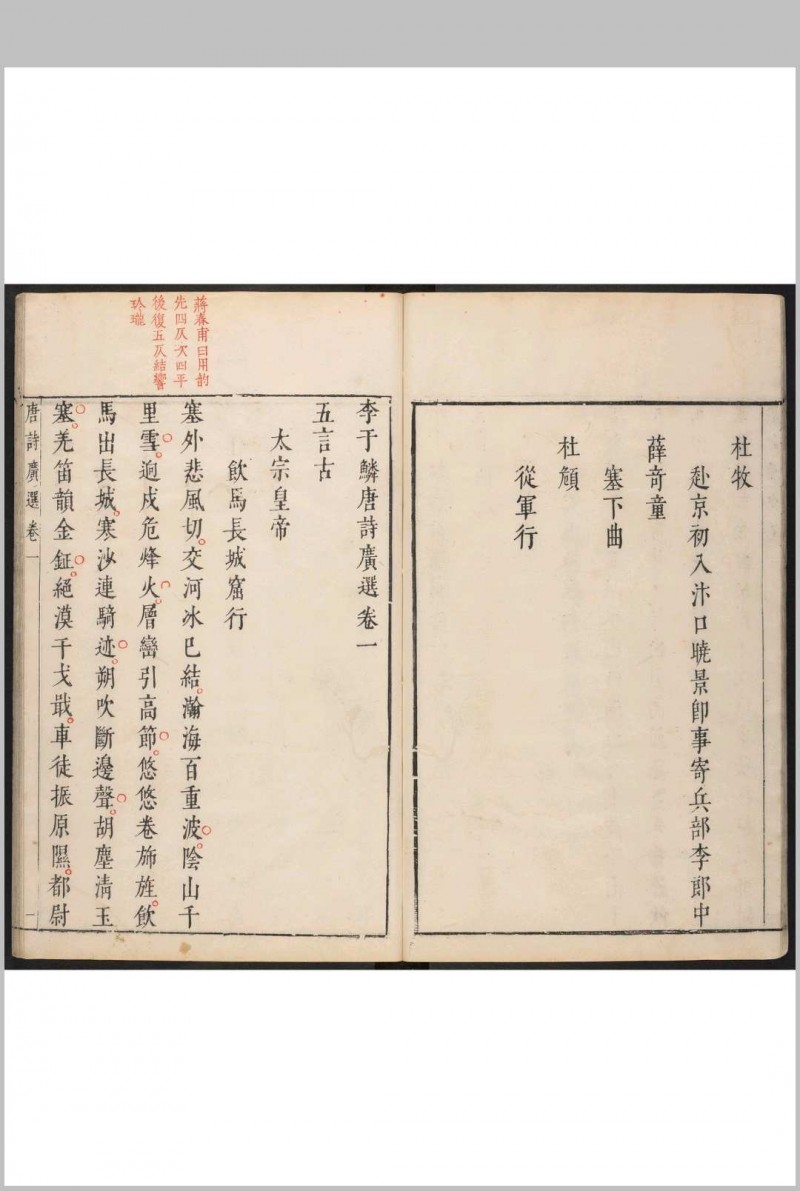 杜牧
赴京初入汴口曉景卽事寄兵部李郎中
薛奇童
塞下曲
杜頠
從軍行
蔣春甫曰用韵
先四仄次四平
後復五仄結響
玲瓏
李于鱗唐詩廣選卷一
五言古
太宗皇帝
飮馬長城窟行
塞外悲風切交河冰巳結瀚海百重波陰山千
里雪逈戍危烽火層巒引高節悠悠卷斾旌飮
馬出長城寒沙連騎迹朔吹斷邊聲胡塵清玉
塞羌笛韻金鉦絕漠干戈戢車徒振原隰都尉
唐詩廣選 卷一 一